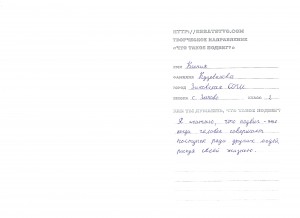 HTTP://KREATIVVO.COM
ТВОРЧЕСКОЕ НАПРАВЛЕНИЕ
«ЧТО ТАКОЕ ПОДВИГ?»
ИМЯ Ксения
ФАМИЛИЯ
ШКОЛА СОШ
с. КЛАСС 3
КАК ТЫ ДУМАЕШЬ, ЧТО ТАКОЕ ПОДВИГ?
Я считаю, что подвиг - это
когда человек совершает
поступок ради других людей,
рискуя своей жизнью.